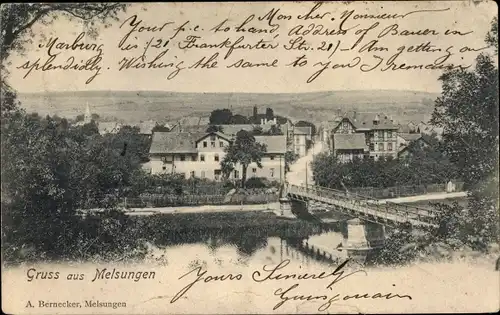 Moncher, Monsieur
Marburg
Your p.c. to hand, Address of Bauer en
is (21 Frankfurter Str. 21) I am getting on
splendidly. Wishing the same to you I remain
Yours Sincerely
Gruss aus Melsungen
A. Bernecker, Melsungen